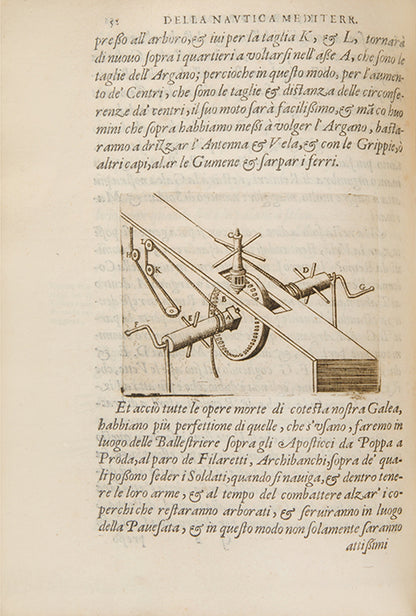 152 DELLA NAVTICA MEDITERR.
preſſo all'arboro, & iui per la taglia K, & L, tornarà
di nuouo sopra i quartieri a voltarſi nell'aſſe A, che ſono le
taglie dell'Argano; percioche in queſto modo, per l'aumen-
to de' Centri, che ſono le taglie & diſtanza delle circonfe-
renze da' ventri, il ſuo moto ſarà faciliſſimo, & mãco huo
mini che ſopra habbiamo meſſi à volger l'Argano, baſta-
ranno a drizzar l'Antenna & Vela, & con le Grippie, ò
altri capi, alzar le Gumene & ſarpar i ferri.
L
H
K
D
G
B
E
F
Et acciò tutte le opere morte di coteſta noſtra Galea,
habbiano più perfettione di quelle, che s'vſano, faremo in
luogo delle Balleſtriere ſopra gli Apoſticci da Poppa a
Proda, al paro de Filaretti, Archibanchi, ſopra de' qua-
li poſſono ſeder i Soldati, quando ſi nauiga, & dentro tene-
re le loro arme, & al tempo del combattere alzar' i co-
perchi che reſtaranno arborati, & ſeruiranno in luogo
della Paueſata, & in queſto modo non ſolamente ſaranno
attiſſimi